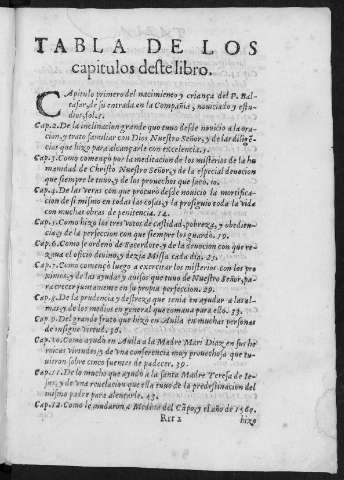 TABLA DE LOS
capitulos deste libro.
CApitulo primero del nacimiento y criança del P. Bal-
tasar, de su entrada en la Compañia, nouiciado y estu-
dios, fol. 1.
Cap. 2. De la inclinacion grande que tuuo desde nouicio a la ora-
cion, y trato familiar con Dios Nuestro Señor, y de las dilige-
cias que hizo para alcançarle con excelencia. 5.
Cap. 3. Como començò por la meditacion de los misterios de la hu
manidad de Christo Nuestro Señor, y de la especial deuocion
que siempre le tuuo, y de los prouechos que sacò. 10.
Cap. 4. De las veras con que procurò desde nouicio la mortifica-
cion de si mismo en todas las cosas, y la prosiguio toda la vida
con muchas obras de penitencia. 14.
Cap. 5. Como hizo los tres votos de castidad, pobreza, y obedien-
cia, y de la perfeccion con que siempre los guardò. 19.
Cap. 6. Como se ordenò de Sacerdote, y de la deuocion con que re-
zaua el oficio diuino, y dezia Missa cada dia. 23.
Cap. 7. Como començò luego a exercitar los misterios con los pro
ximos, y de las ayudas y auisos que tuuo de Nuestro Señor, pa-
ra crecer juntamente en su propia perfeccion. 29.
Cap. 8. De la prudencia y destreza que tenia en ayudar a las al-
mas, y de los medios en general que tomaua para ello. 33.
Cap. 9. Del grande fruto que hizo en Auila en muchas personas
de insigne virtud. 36.
Cap. 10. Como ayudò en Auila a la Madre Mari Diaz en sus he
roicas virtudes, y de vna conferencia muy prouechosa que tu-
uieron sobre cinco fuentes de padecer. 39.
Cap. 11. De lo mucho que ayudò a la santa Madre Teresa de Ie-
sus, y de vna reuelacion que ella tuuo de la predestinacion del
mismo padre para alentarle. 43.
Cap. 12. Como le mudaron a Medina del Cãpo, y el año de 1569.
Rrr 2 hizo